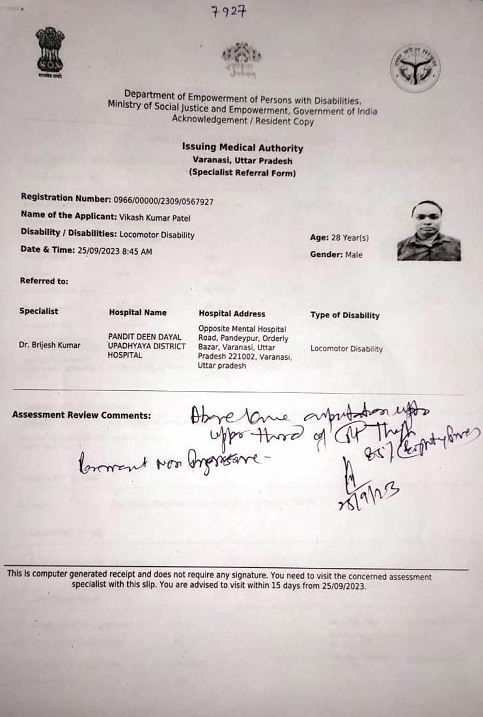 7927
Department of Empowerment of Persons with Disabilities,
Ministry of Social Justice and Empowerment, Government of India
Acknowledgement / Resident Copy
Issuing Medical Authority
Varanasi, Uttar Pradesh
(Specialist Referral Form)
Registration Number: 0966/00000/2309/0567927
Name of the Applicant: Vikash Kumar Patel
Disability / Disabilities: Locomotor Disability
Date & Time: 25/09/2023 8:45 AM
Age: 28 Year(s)
Gender: Male
Referred to:
Specialist Hospital Name Hospital Address Type of Disability
Dr. Brijesh Kumar
PANDIT DEEN DAYAL
UPADHYAYA DISTRICT
HOSPITAL
Opposite Mental Hospital
Road, Pandeypur, Orderly
Bazar, Varanasi, Uttar
Pradesh 221002, Varanasi,
Uttar pradesh
Locomotor Disability
Assessment Review Comments:
Above knee amputation upto
upper third of Thigh
85% (Eighty five
non progressive
25/9/23
This is computer generated receipt and does not require any signature. You need to visit the concerned assessment
specialist with this slip. You are advised to visit within 15 days from 25/09/2023.